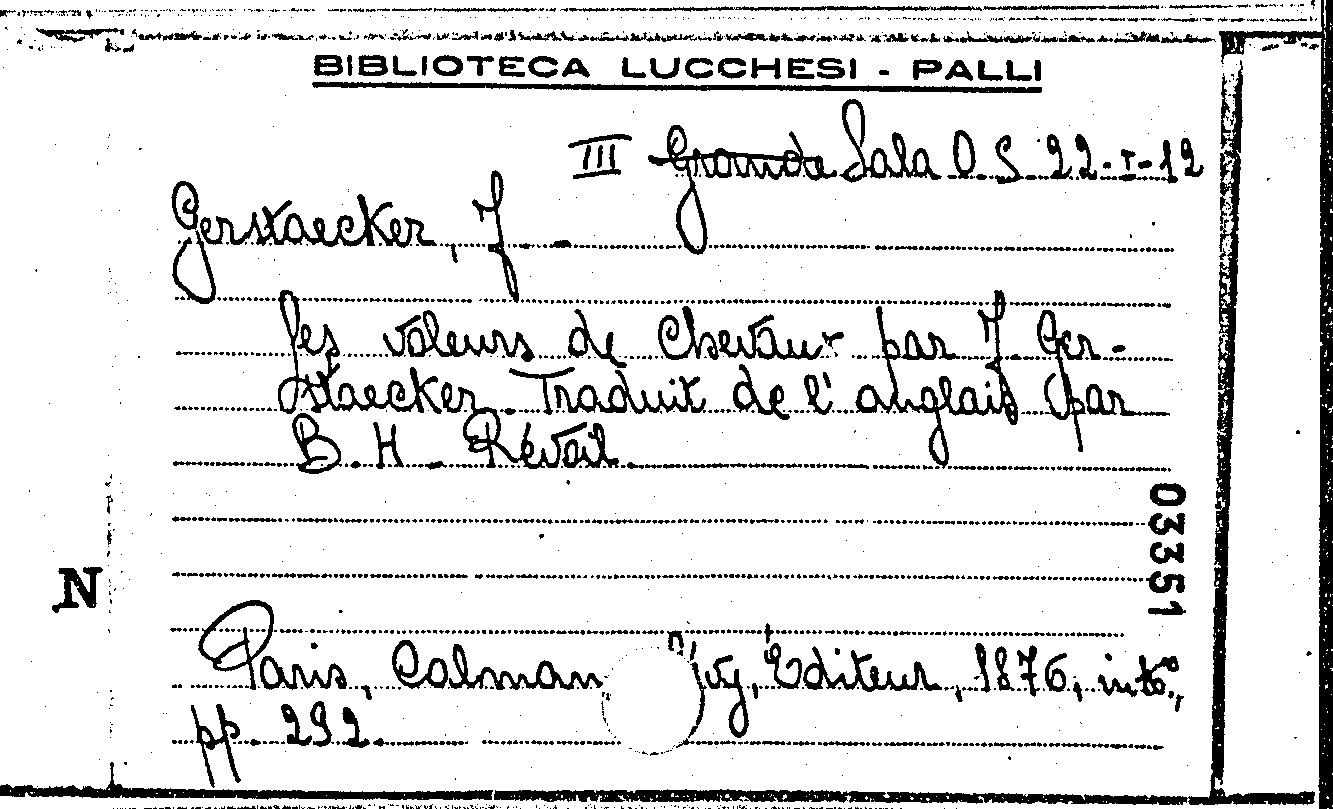 BIBLIOTECA LUCCHESI - PALLI
III Grande Sala O. S. 22-I-12
Gerstaecker, J. -
Les voleurs de Chevaux par J. Ger-
staecker. Traduit de l'anglais par
B. H. Révoil.
03351
N
Paris, Calman Editeur, 1876, in 16°,
pp. 292.